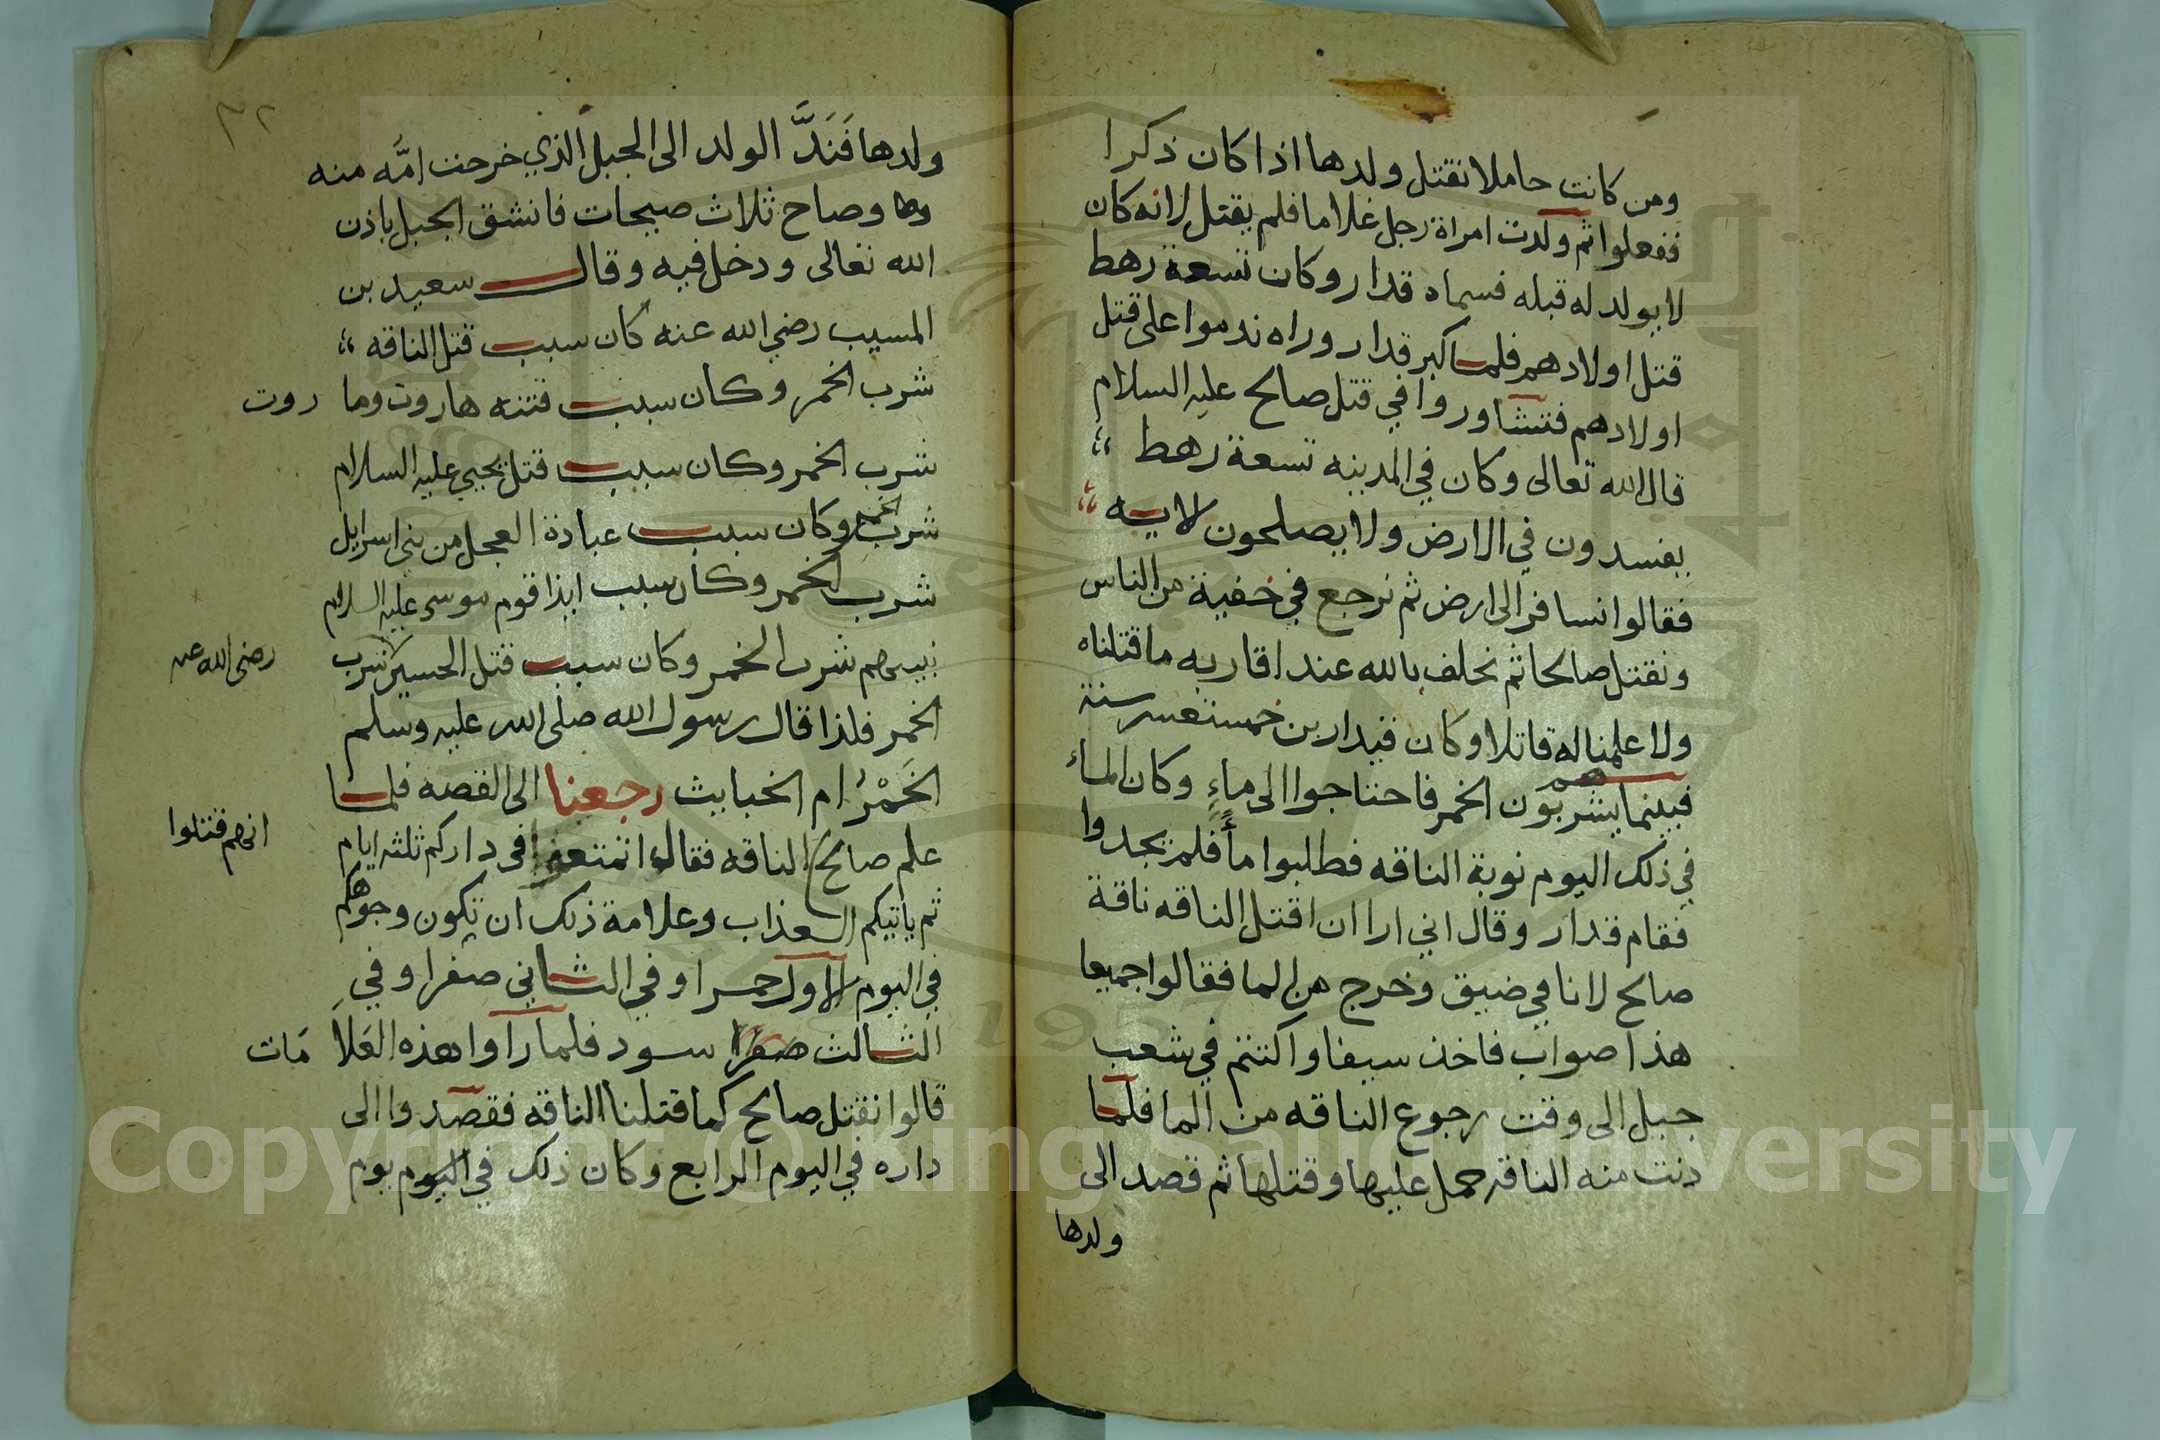 ومن كانت حاملا نقتل ولدها اذا كان ذكرا
ففعلوا ثم ولدت امراة رجل غلاما فلم يقتل لانه كان
لا يولد له قبله فسماه قدار وكان تسعة رهط
قتل اولادهم فلما كبر قدار وراه ندموا على قتل
اولادهم فتشاوروا في قتل صالح عليه السلام
قال الله تعالى وكان في المدينه تسعة رهط
يفسدون في الارض ولا يصلحون الايه
فقالوا نسافر الى ارض ثم نرجع في خفية من الناس
ونقتل صالحا ثم نحلف بالله عند اقاربه ما قتلناه
ولا علمنا له قاتلا وكان قيدار بن خمستعسر سنة
فبينما هم يشربون الخمر فاحتاجوا الى ماء وكان الماء
في ذلك اليوم نوبة الناقه فطلبوا مأ فلم يجدوا
فقام قدار وقال اني ارا ان اقتل الناقه ناقة
صالح لانا في ضيق وخرج من الما فقالوا جميعا
هذا صواب فاخذ سيفا واكتتم في شعب
جبل الى وقت رجوع الناقه من الما فلما
دنت منه الناقه حمل عليها وقتلها ثم قصد الى
ولدها
٣٢
ولدها فَنَدَّ الولد الى الجبل الذي خرجت امَّه منه
وصاح ثلاث صيحات فانشق الجبل باذن
الله تعالى ودخل فيه وقال سعيد بن
المسيب رضي الله عنه كان سبب قتل الناقه
شرب الخمر وكان سبب فتنه هاروت وما روت
شرب الخمر وكان سبب قتل يحيي عليه السلام
شرب الخمر وكان سبب عبادة العجل من بني اسرايل
شرب الخمر وكان سبب ايذا قوم موسى عليه السلام
نبيهم شرب الخمر وكان سبب قتل الحسين شرب
رضى الله عنه
الخمر فلذا قال رسول الله صلى الله عليه وسلم
الخَمْرُ ام الخبايث رجعنا الى القصه فلما
علم صالح الناقه فقال تمتعوا في داركم ثلثه ايام
انهم قتلوا
ثم ياتيكم العذاب وعلامة ذلك ان تكون وجوهكم
في اليوم الاول حمرا وفي الثاني صفرا وفي
الثالث سود فلما راوا هذه العَلاَ مَات
قالوا نقتل صالح كما قتلنا الناقه فقصدوا الى
داره في اليوم الرابع وكان ذلك في اليوم يوم
Copyright © King Saud University